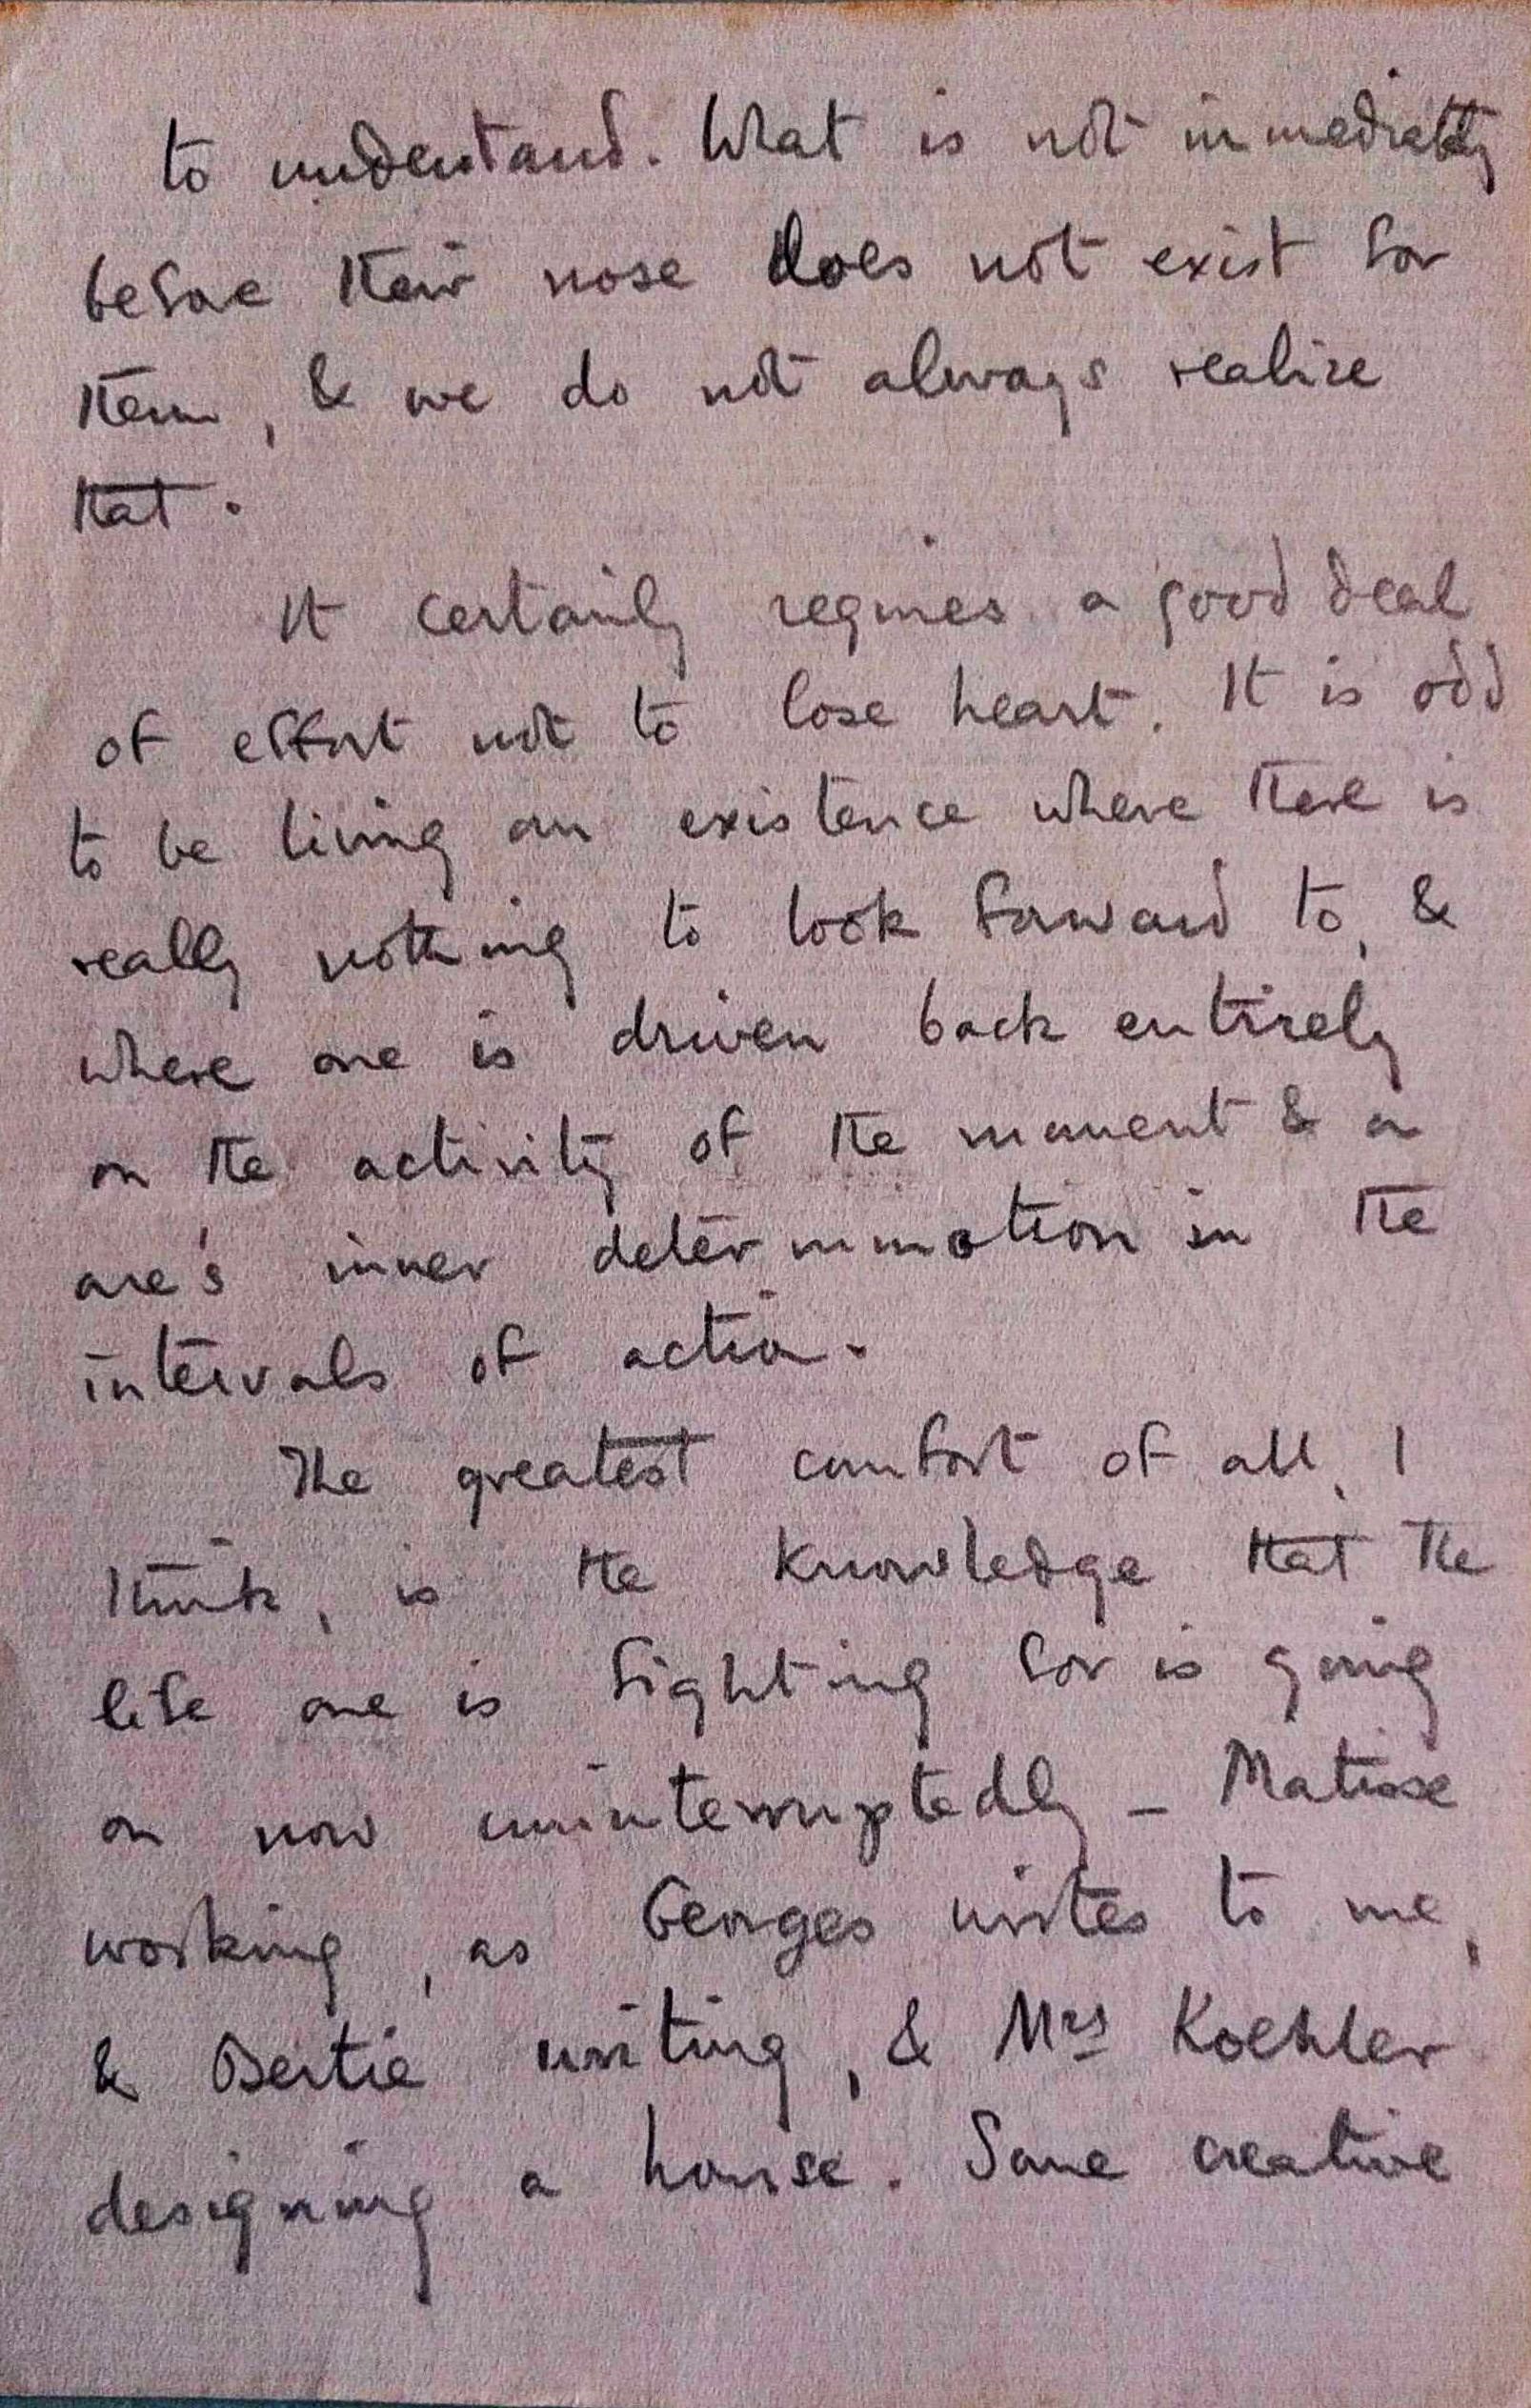 to understand. What is not immediately
before their nose does not exist for
them, & we do not always realize
that.
It certainly requires a good deal
of effort not to lose heart. It is odd
to be living an existence where there is
really nothing to look forward to, &
where one is driven back entirely
on the activity of the moment & on
one's inner determination in the
intervals of action.
The greatest comfort of all, I
think, is the knowledge that the
life one is fighting for is going
on now uninterruptedly - Matisse
working, as Georges writes to me,
& Bertie writing, & Mrs Koehler
designing a house. Some creative